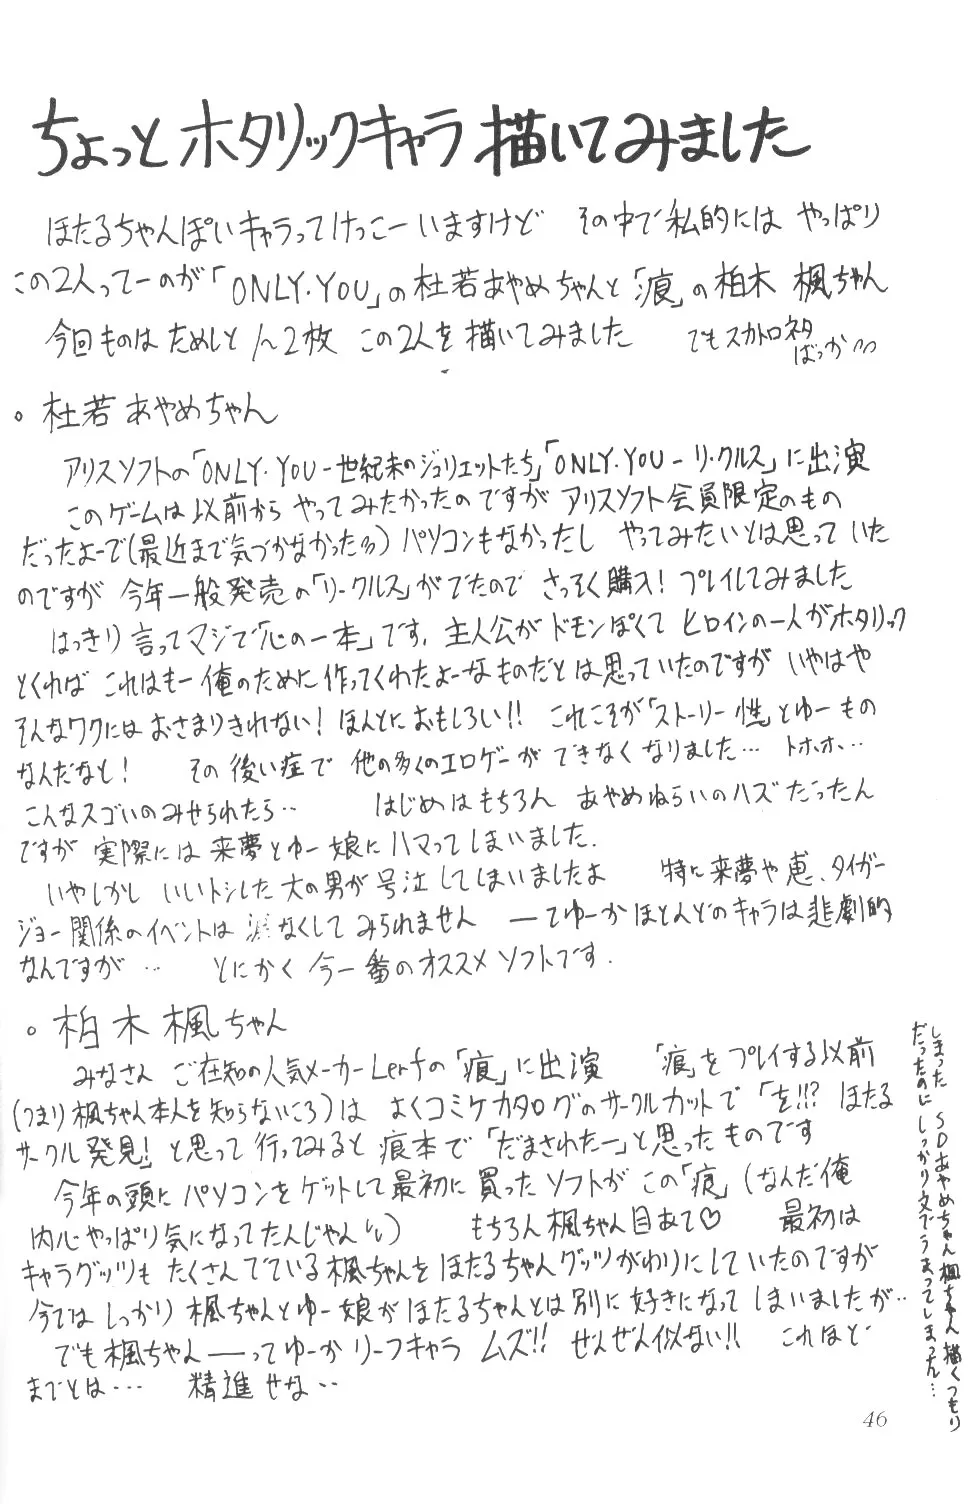 ちょっとホタリックキャラ描いてみました
ほたるちゃんぽいキャラってけっこーいますけど その中で私的には やっぱり
この2人ってーのが「ONLY.YOU」の杜若あやめちゃんと「痕」の柏木 楓ちゃん
今回ものはためしと 2枚 この2人を描いてみました でもスカトロネタ
ばっか
。杜若あやめちゃん
アリスソフトの「ONLY.YOU-世紀末のジュリエットたち」「ONLY.YOU-リ・クルス」に出演
このゲームは以前からやってみたかったのですがアリスソフト会員限定のもの
だったよーで(最近まで気づかなかった)パソコンもなかったし やってみたいとは思っていた
のですが 今年一般発売の「リ・クルス」がでたので さっそく購入!プレイしてみました
はっきり言ってマジで「心の一本」です.主人公がドモンぽくてヒロインの一人がホタリック
とくれば これはもー俺のために作ってくれたよーなものだとは思っていたのですが いやはや
そんなワクにはおさまりきれない!ほんとにおもしろい!! これこそが「ストーリー性」とゆーもの
なんだなと! その後い症で 他の多くのエロゲーができなくなりました… トホホ…
こんなスゴいのみせられたら‥ はじめはもちろん あやめねらいのハズだったん
ですが 実際には来夢とゆー娘にハマってしまいました.
いやしかし いいトシした大の男が号泣してしまいましたよ 特に来夢や恵、タイガー
ジョー関係のイベントは涙なくしてみられません ―てゆーかほとんどのキャラは悲劇的
なんですが… とにかく今一番のオススメソフトです.
。柏木楓ちゃん
みなさん ご在知の人気メーカーLerfの「痕」に出演 「痕」をプレイする以前
(つまり楓ちゃん本人を知らないころ)は よくコミケカタログのサークルカットで「を!!? ほたる
サークル発見!」と思って行ってみると痕本で「だまされたー」と思ったものです
今年の頭にパソコンをゲットして最初に買ったソフトがこの「痕」(なんだ俺
内心やっぱり気になってたんじゃん) もちろん楓ちゃん目あて♡ 最初は
キャラグッツもたくさんでている楓ちゃんをほたるちゃんグッツがわりにしていたのですが
今ではしっかり楓ちゃんとゆー娘がほたるちゃんとは別に好きになってしまいましたが‥
でも楓ちゃん――ってゆーかリーフキャラ ムズ!! ぜんぜん似ない!! これほど
までとは… 精進せな‥
しまった SDあやめちゃん楓ちゃん描くつもり
だったのにしっかり文でうまってしまった…
46